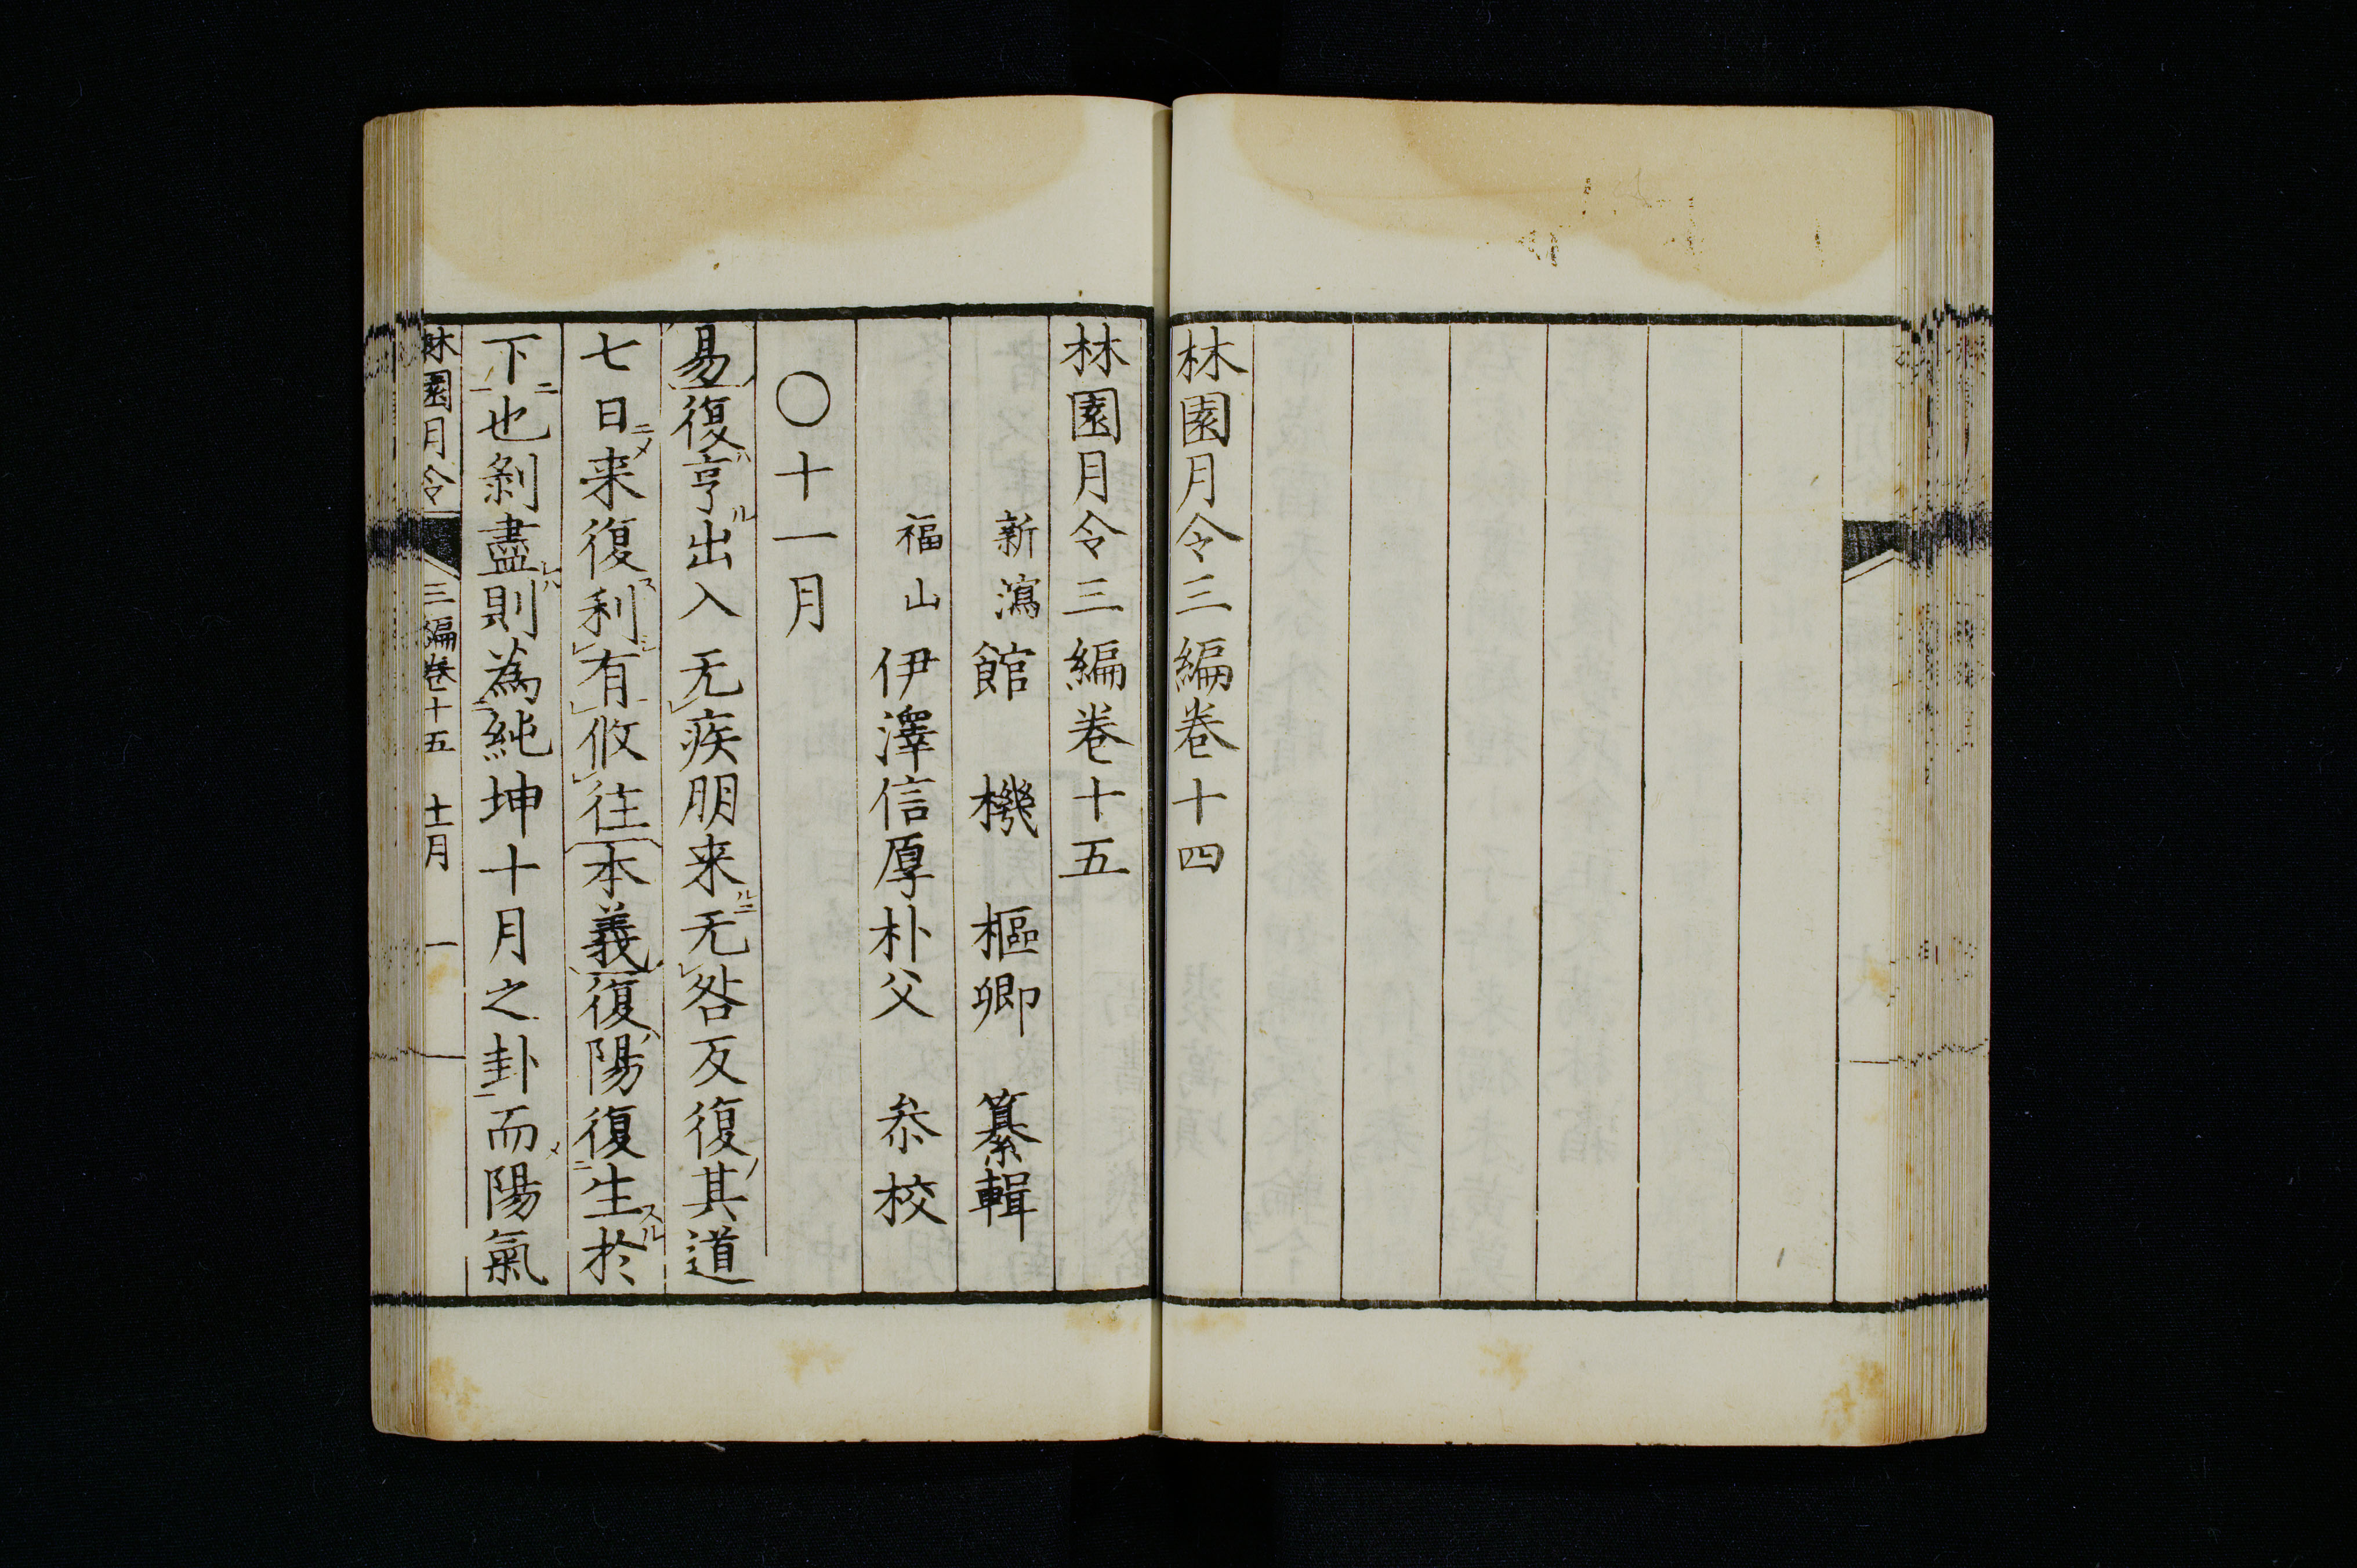 林園月令三編卷十四
林園月令三編卷十五
新潟 館 機 樞卿 纂輯
福山 伊澤信厚朴父 叅校
〇十一月
易復亨出入无疾朋来无咎反復其道
七日来復利有攸往本義復陽復生於
下也剝盡則為純坤十月之卦而陽氣
林園月令 三編卷十五 十一月 一